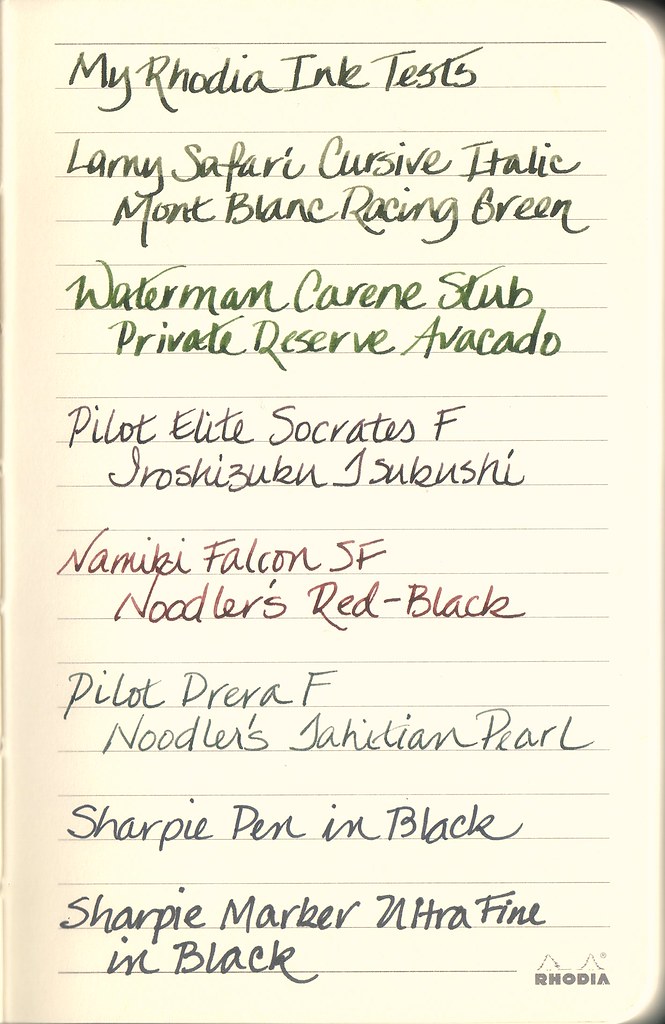 My Rhodia Ink Tests
Lamy Safari Cursive Italic
Mont Blanc Racing Green
Waterman Carene Stub
Private Reserve Avacado
Pilot Elite Socrates F
Iroshizuku Tsukushi
Namiki Falcon SF
Noodler's Red-Black
Pilot Prera F
Noodler's Tahitian Pearl
Sharpie Pen in Black
Sharpie Marker Ultra Fine
in Black
RHODIA®